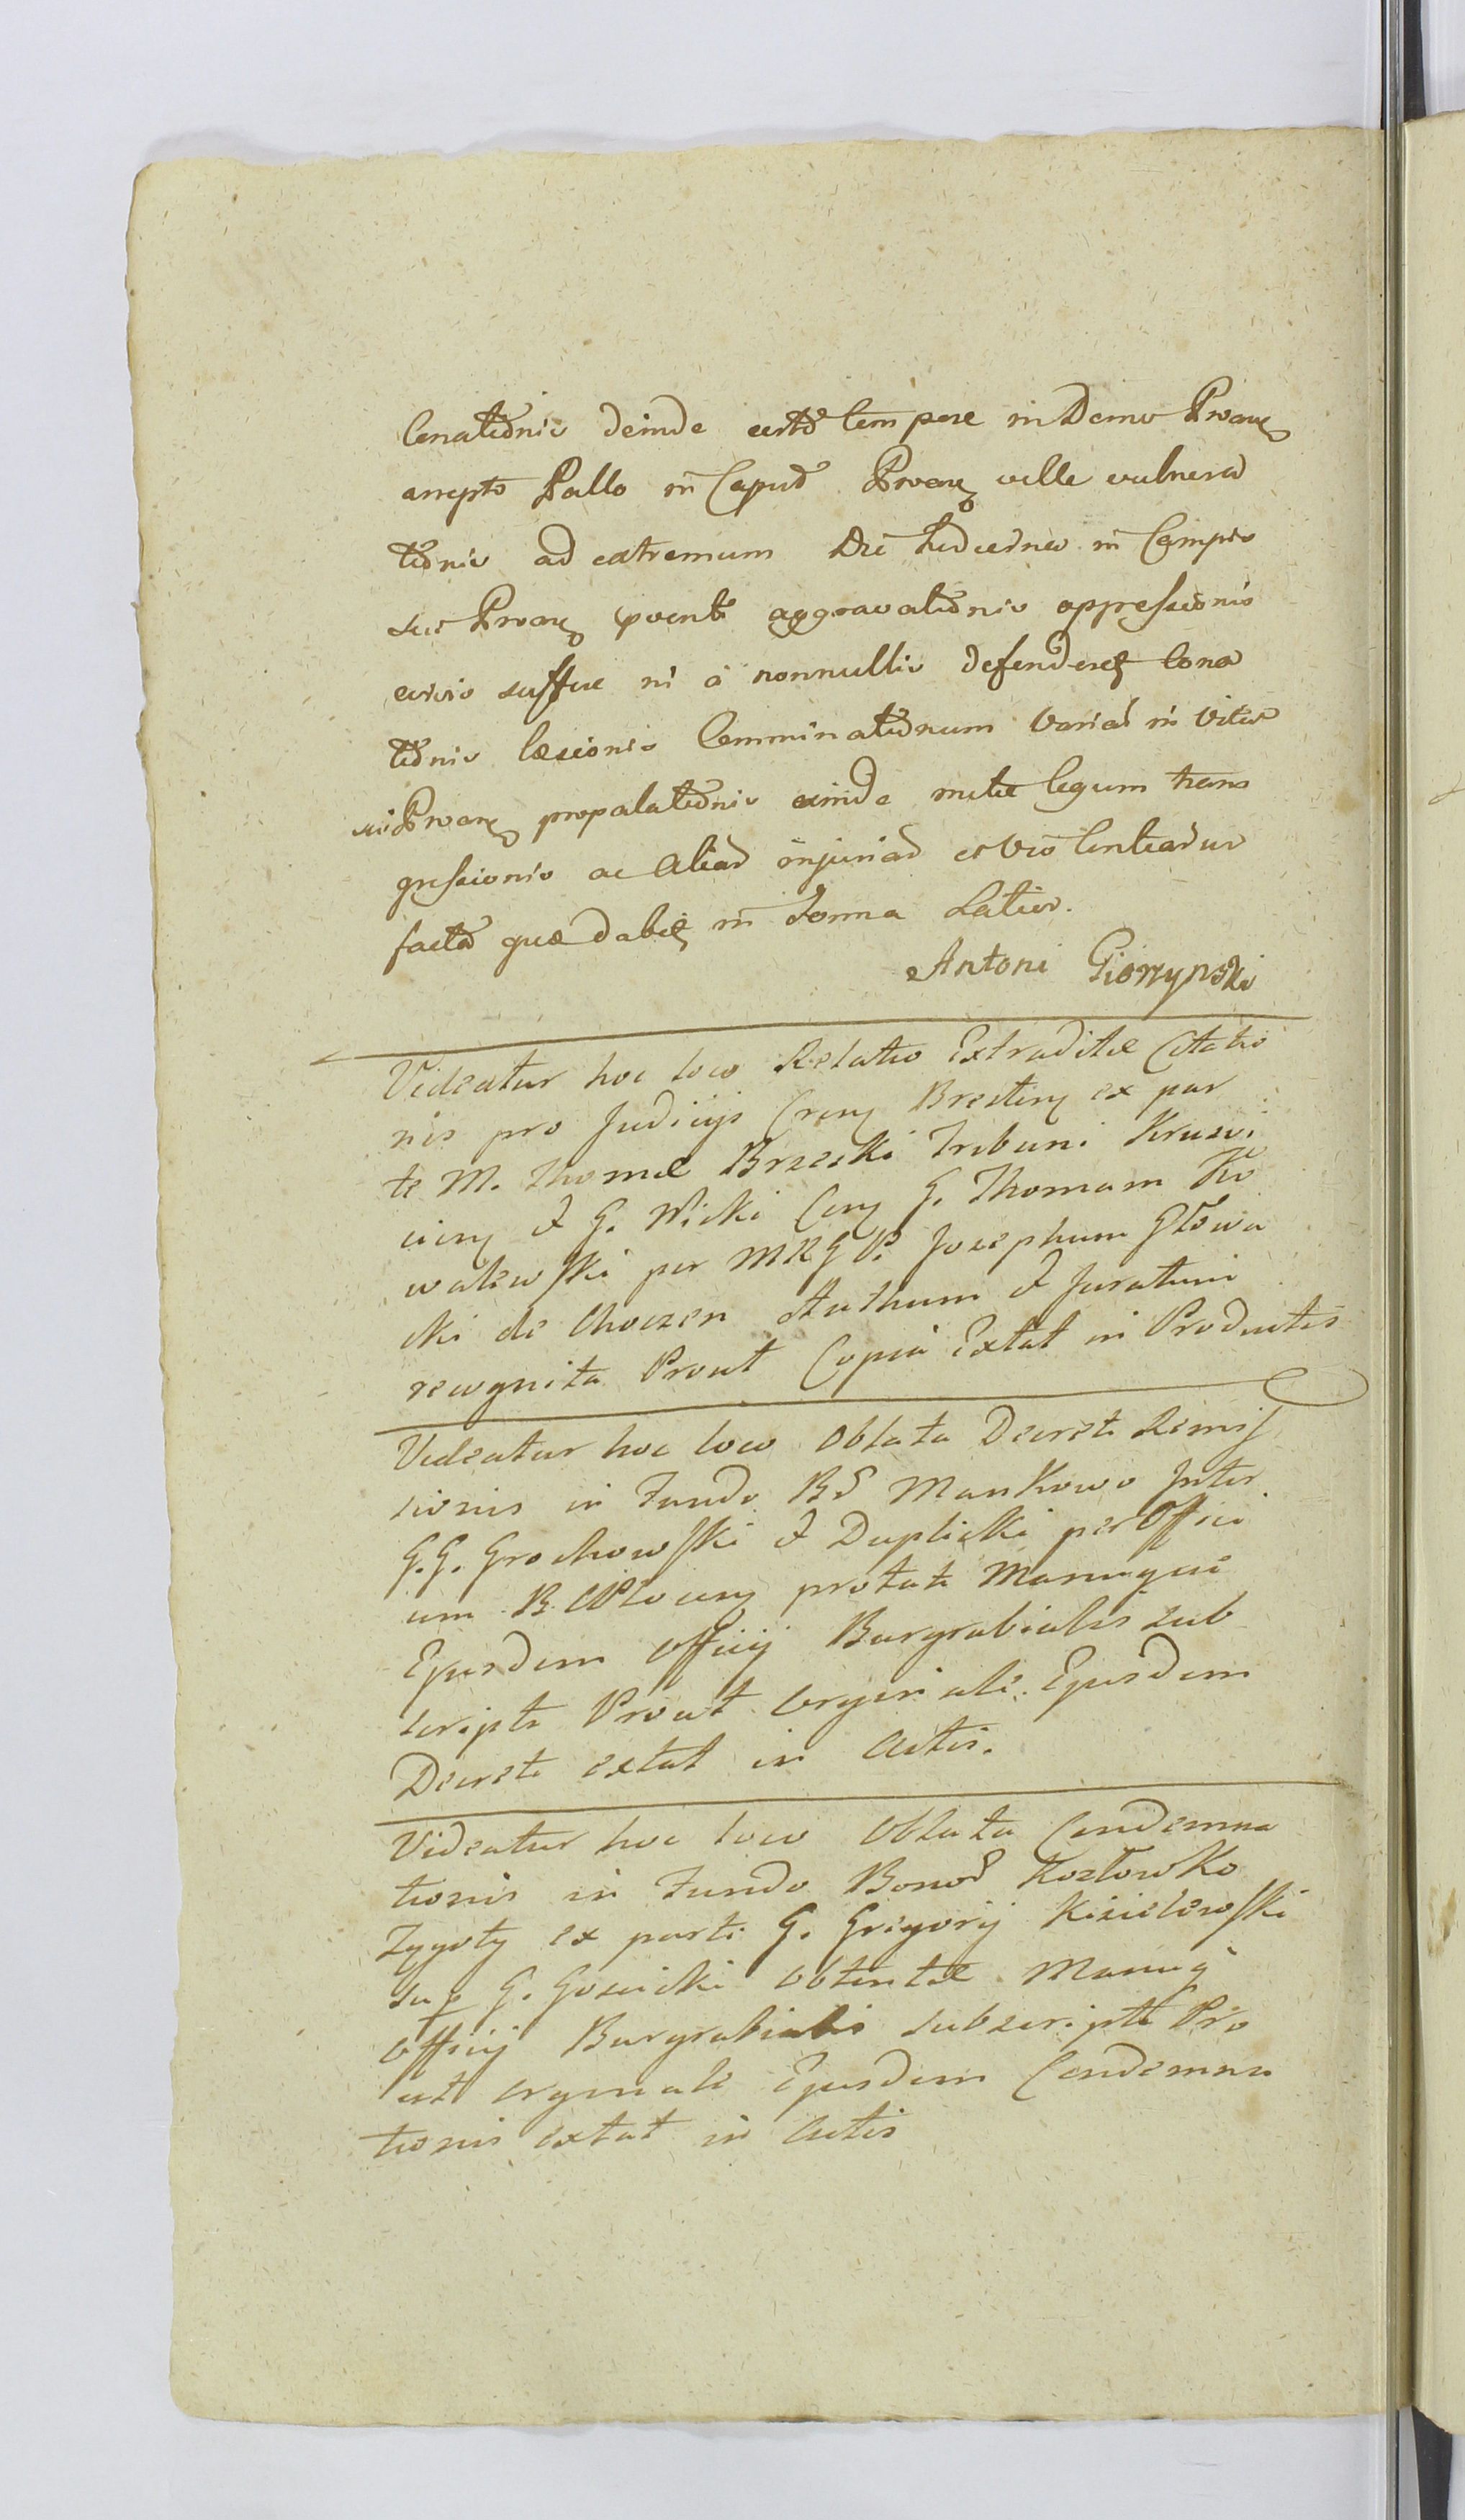 Conationis deinde certo tempore in Domo Proare
arrepto Pallo in Caput Proare velle vulnera
tionis ad extremum in Campis
sui Proare aggravationis oppressionis
suffue ni a nonnullis defenderet Cona
tionis læsionis Comminationum Varias in Vitæ
sui Proare propalationis exinde metæ legum trans
gressionis ac Alias injurias et
facto quo in Forma Latius.
Antoni Pioszynski
Videatur hoc loco Relatio Extraditæ Citatio
nis pro Judicijs Cren Bresten ex par
te M. Thomæ Brzeski Tribuni Krusvi
cien & G. Wicki Con G. Thomam Ko
walewski per MRGP. Josephum Głowa
cki de Choczen & Juratum
recognita Prout Copia Extat in Productis
Videatur hoc loco Oblata Decreti Remis
sionis in Fundo Bd Mankowo Inter
G.G. Grochowski & Duplicki per Offici
um B. prolati Manuque
Ejusdem Officij Burgrabialis sub
scripti Prout orginale Ejusdem
Decreti extat in Actis.
Videatur hoc loco Oblata Condemna
tionis in Fundo Bonod Kozłowko
Zygoty ex parte G. Gregorij Kisielewski
sup G. Gosicki obtentæ Manuq
Officij Burgrabialis subscriptæ Pro
ut orginale Ejusdem Condemna
tionis extat in Actis